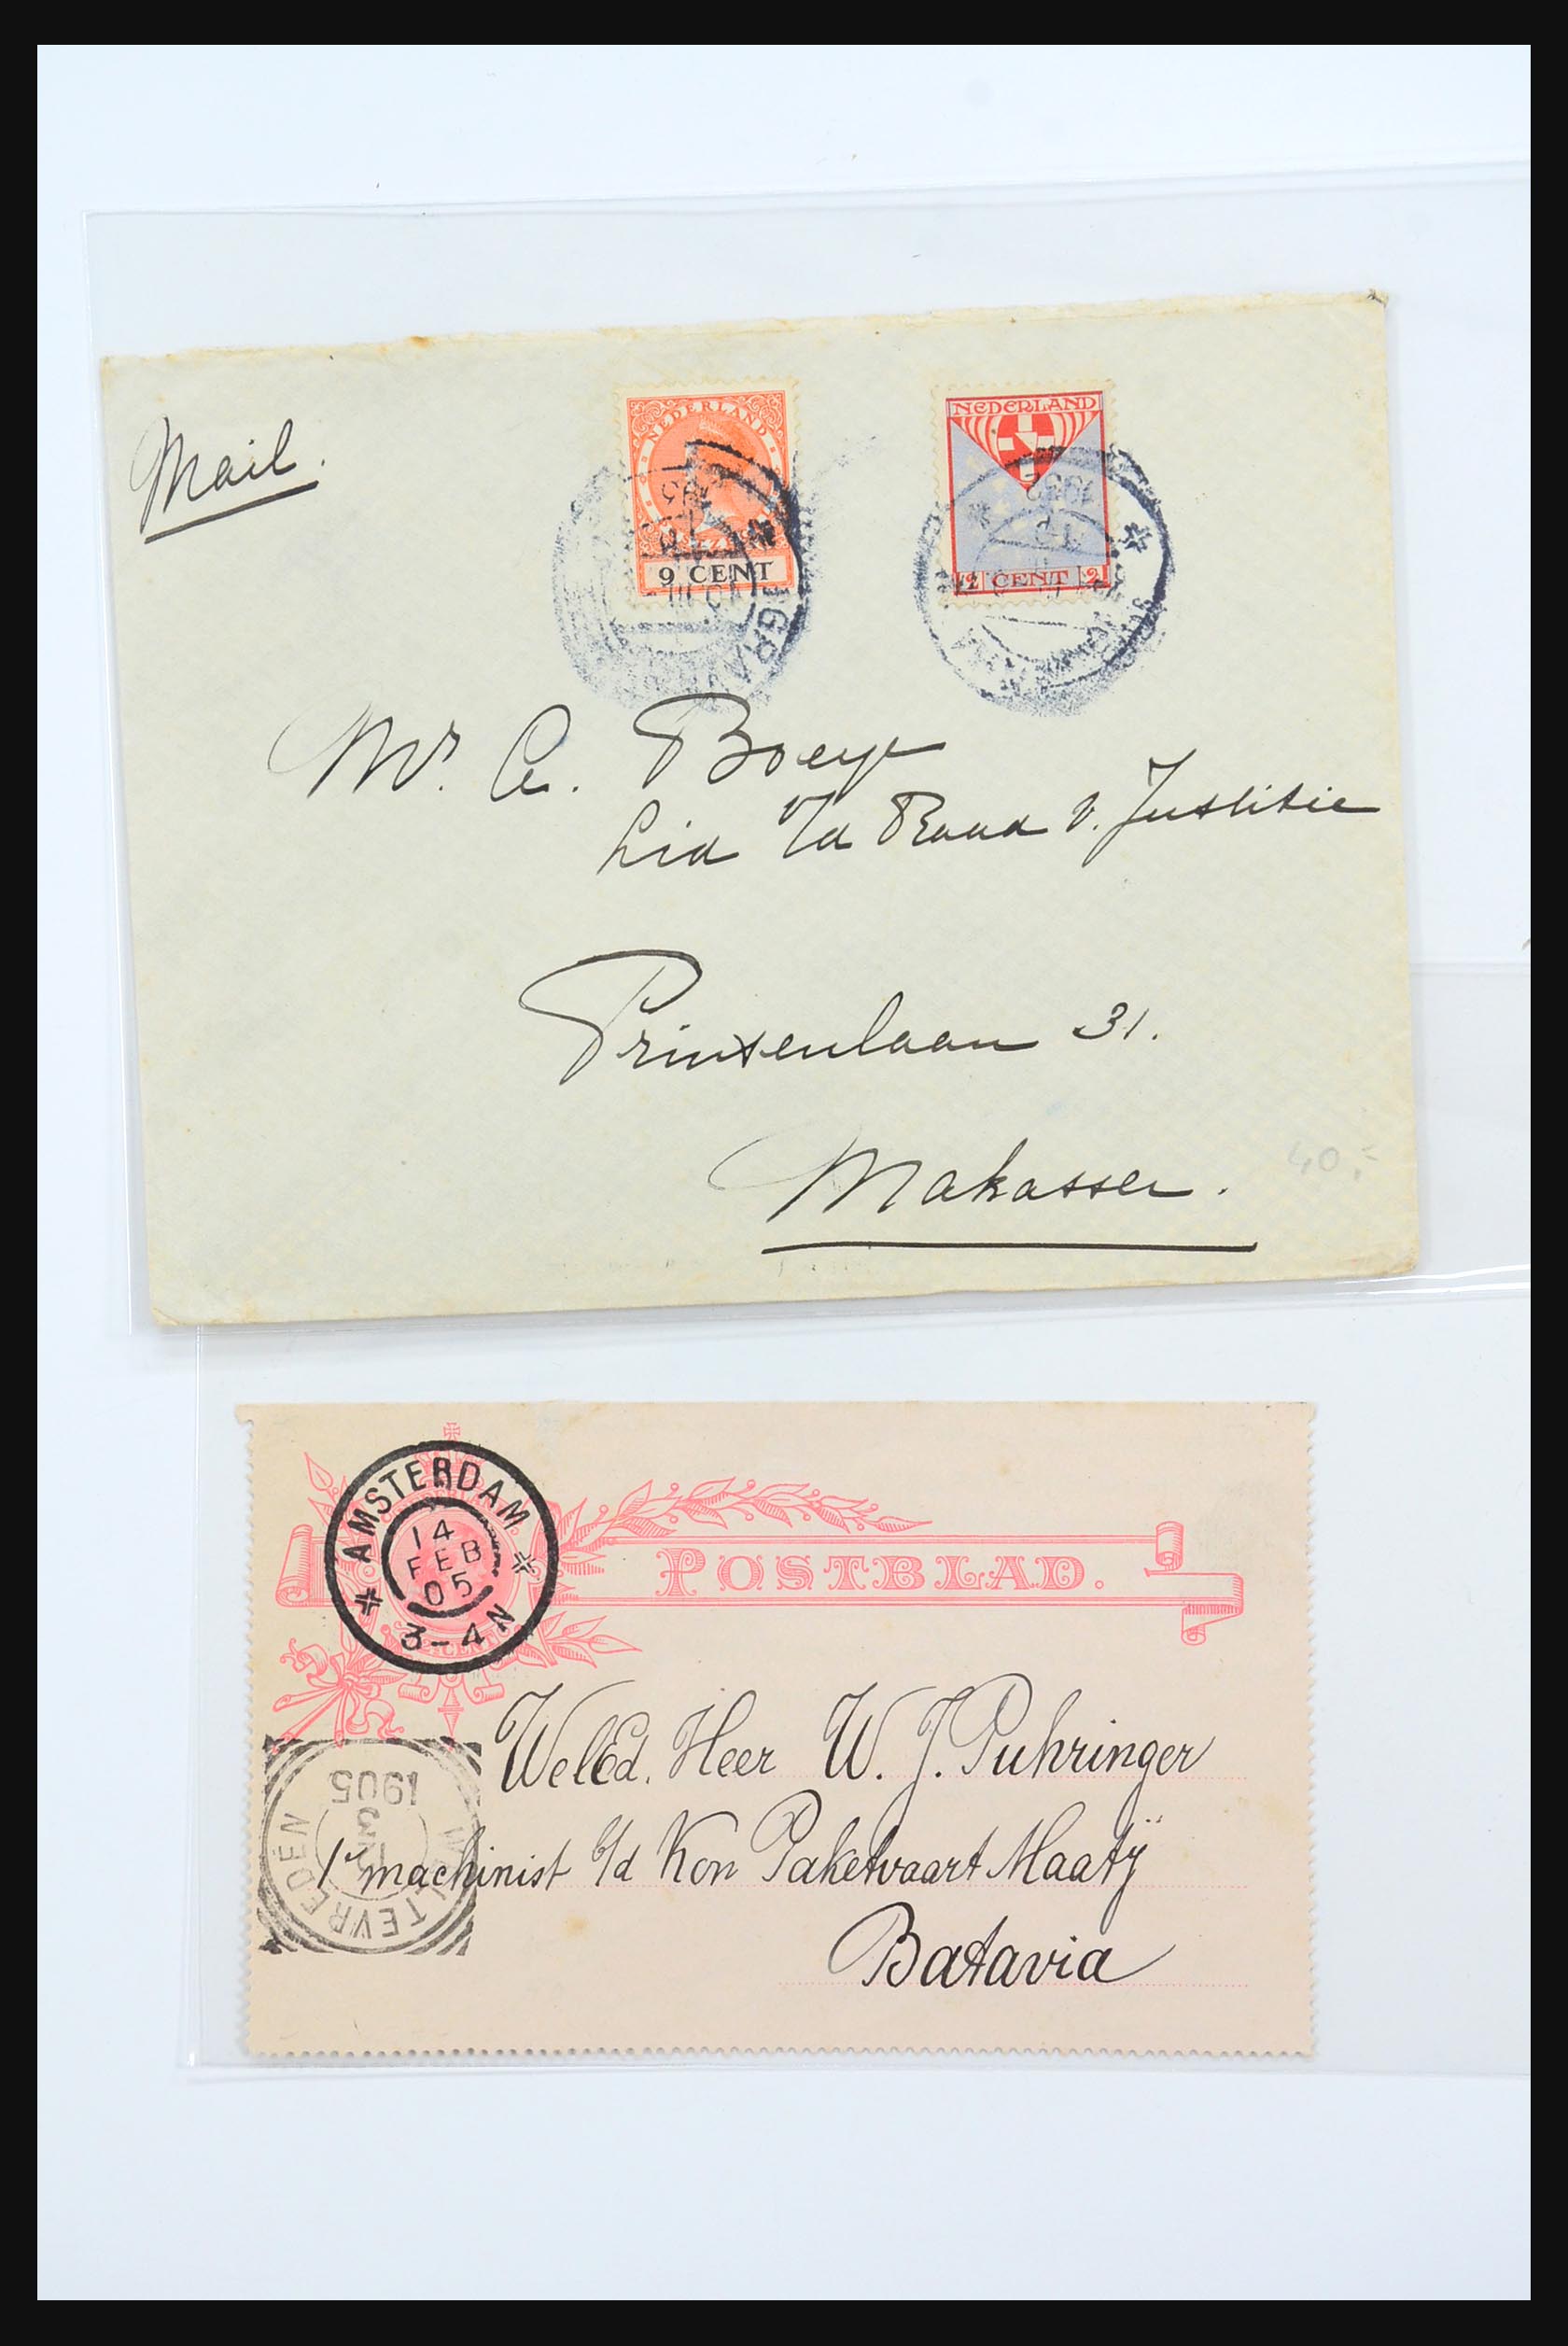 Mail.
NEDERLAND
9 CENT
NEDERLAND
2 CENT 2
1932
Mr. A. Boeye
Lid v/d Raad v. Justitie
Prinsenlaan 31.
Makasser.
40.=
AMSTERDAM
14
FEB
05
3-4N
POSTBLAD.
WelEd. Heer W. J. Puhringer
1e machinist b/d Kon Paketvaart Maatij
Batavia
WELTEVREDEN
3
1905